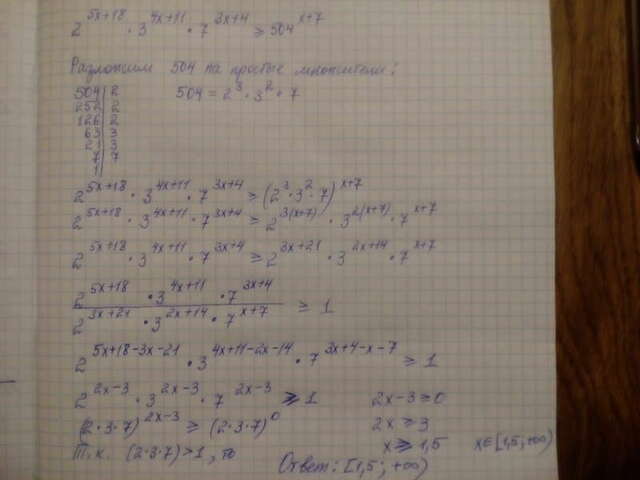 2^{5x+18} · 3^{4x+11} · 7^{3x+4} ≥ 504^{x+7}
Разложим 504 на простые множители:
504 | 2 504 = 2^3 · 3^2 · 7
252 | 2
126 | 2
63 | 3
21 | 3
7 | 7
1 |
2^{5x+18} · 3^{4x+11} · 7^{3x+4} ≥ (2^3 · 3^2 · 7)^{x+7}
2^{5x+18} · 3^{4x+11} · 7^{3x+4} ≥ 2^{3(x+7)} · 3^{2(x+7)} · 7^{x+7}
2^{5x+18} · 3^{4x+11} · 7^{3x+4} ≥ 2^{3x+21} · 3^{2x+14} · 7^{x+7}
2^{5x+18} · 3^{4x+11} · 7^{3x+4}
2^{3x+21} · 3^{2x+14} · 7^{x+7} ≥ 1
2^{5x+18-3x-21} · 3^{4x+11-2x-14} · 7^{3x+4-x-7} ≥ 1
2^{2x-3} · 3^{2x-3} · 7^{2x-3} ≥ 1 2x-3≥0
(2·3·7)^{2x-3} ≥ (2·3·7)^0 2x ≥ 3
Т.к. (2·3·7)>1, то x ≥ 1,5 x∈[1,5;+∞)
Ответ: [1,5; +∞)